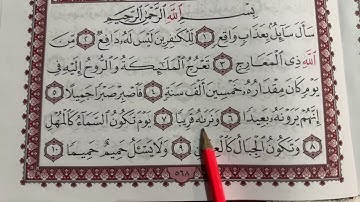 بِسْمِ ٱللَّهِ ٱلرَّحْمَٰنِ ٱلرَّحِيمِ
سَأَلَ سَآئِلٌۢ بِعَذَابٍ وَاقِعٍ ١ لِّلْكَٰفِرِينَ لَيْسَ لَهُۥ دَافِعٌ ٢ مِّنَ
ٱللَّهِ ذِى ٱلْمَعَارِجِ ٣ تَعْرُجُ ٱلْمَلَٰٓئِكَةُ وَٱلرُّوحُ إِلَيْهِ فِى
يَوْمٍ كَانَ مِقْدَارُهُۥ خَمْسِينَ أَلْفَ سَنَةٍ ٤ فَٱصْبِرْ صَبْرًا جَمِيلًا ٥
إِنَّهُمْ يَرَوْنَهُۥ بَعِيدًا ٦ وَنَرَىٰهُ قَرِيبًا ٧ يَوْمَ تَكُونُ ٱلسَّمَآءُ كَٱلْمُهْلِ
٨ وَتَكُونُ ٱلْجِبَالُ كَٱلْعِهْنِ ٩ وَلَا يَسْـَٔلُ حَمِيمٌ حَمِيمًا ١٠
٥٦٨